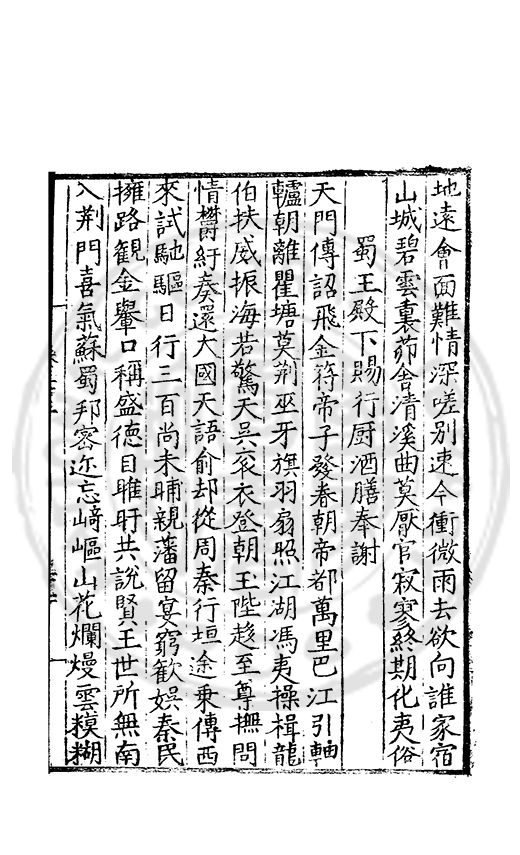 地遠會面難情深嗟别速今衝微雨去欲向誰家宿
山城碧雲裏茆舍清溪曲莫厭官寂寥終期化夷俗
蜀王殿下賜行厨酒膳奉謝
天門傳詔飛金符帝子發春朝帝都萬里巴江引軸
轤朝離瞿塘莫荆巫牙旗羽扇照江湖馮夷操楫龍
伯扶威振海若驚天吳衮衣登朝王陛趍至尊撫問
情欝紆奏還大國天語俞却從周秦行坦途乗傳西
來試馳驅日行三百尚未晡親藩留宴窮歡娱秦民
擁路觀金轝口稱盛德目睢盱共説賢王世所無南
入荆門喜氣蘇蜀邦密迩忘﨑嶇山花爛熳雲糢糊